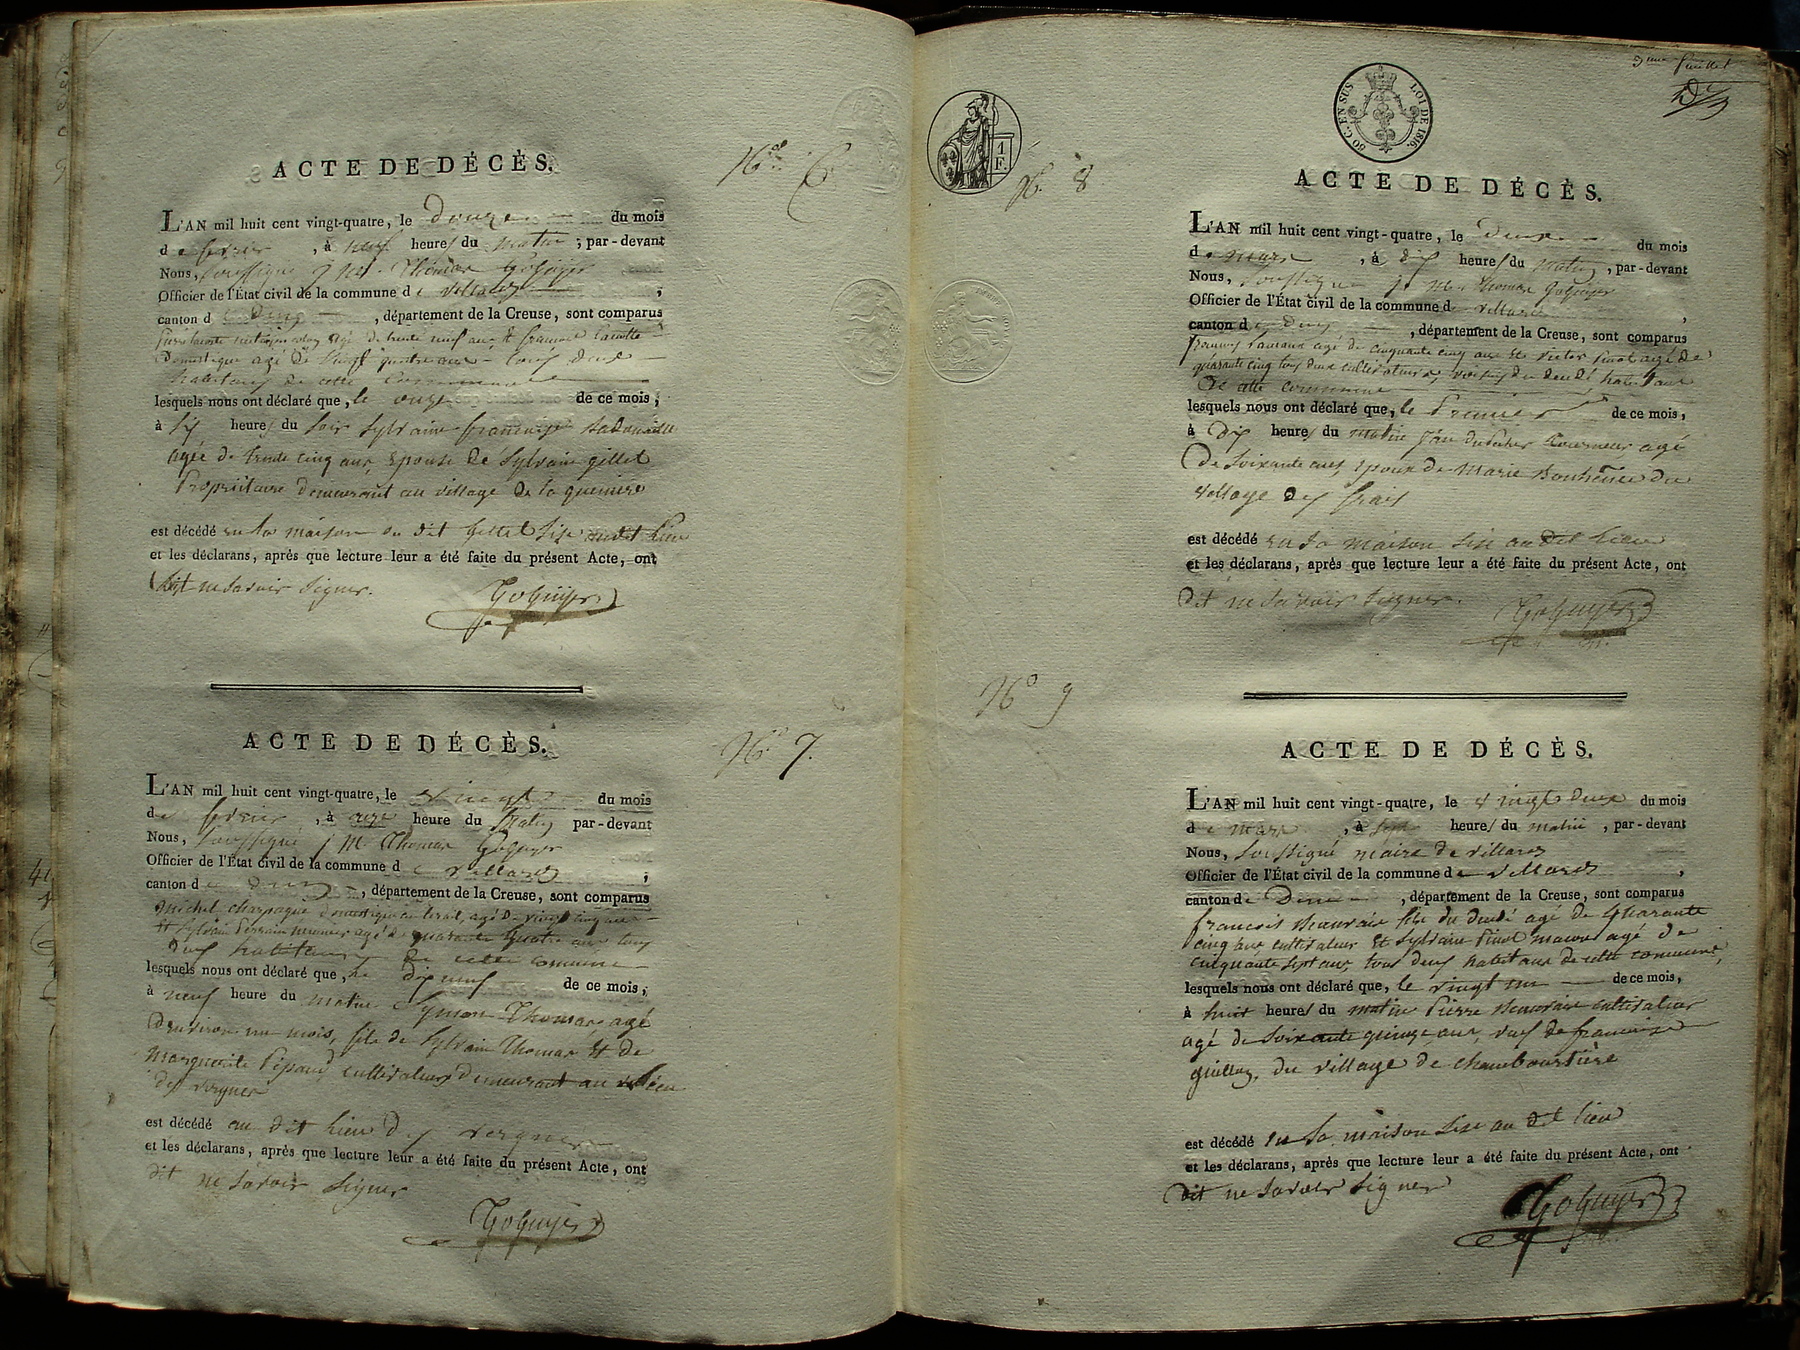 ACTE DE DÉCÈS.
N.º 6
L'AN mil huit cent vingt-quatre, le Douze du mois
de fevrier, à neuf heures du matin ; par-devant
Nous, soussigné j M. Thomas Goguyer
Officier de l'État civil de la commune de villard ;
canton de Dun, département de la Creuse, sont comparus
agé de trente neuf ans et francois
Domestique agé de vingt quatre ans tous deux
habitans de cette commune
lesquels nous ont déclaré que, le onze de ce mois ;
à six heures du soir Sylvaine francoise
agée de trente cinq ans, epouse de Sylvain gillet
Propriétaire demeurant au village de la
est décédé en la maison du dit gillet sise au dit lieu
et les déclarans, après que lecture leur a été faite du présent Acte, ont
dit ne savoir signer.
Goguyer
ACTE DE DÉCÈS.
N.º 7.
L'AN mil huit cent vingt-quatre, le vingt du mois
de fevrier, à onze heure du matin par-devant
Nous, soussigné j M. Thomas Goguyer
Officier de l'État civil de la commune de villard ;
canton de Dun, département de la Creuse, sont comparus
Michel chapaque agé de vingt cinq ans
et Sylvain Perrain meunier agé de quarante quatre ans tous
deux habitans de cette commune
lesquels nous ont déclaré que, le dix neuf de ce mois ;
à neuf heure du matin Symon Thomas agé
d'environ un mois, fils de Sylvain Thomas et de
Marguerite Pepaud, cultivateurs demeurant au lieu
des vergnes
est décédé au dit lieu des vergnes
et les déclarans, après que lecture leur a été faite du présent Acte, ont
dit ne savoir signer
Goguyer
3eme feuillet
1 F.
50 C. EN SUS LOI DE 1816.
N.º 8
ACTE DE DÉCÈS.
L'AN mil huit cent vingt-quatre, le Deux du mois
de mars, à dix heures du matin, par-devant
Nous, soussigné j M. Thomas Goguyer
Officier de l'État civil de la commune de villard,
canton de Dun, département de la Creuse, sont comparus
francois agé de cinquante cinq ans et victor Pinot agé de
quarante cinq tous deux cultivateurs, voisins du decédé habitans
de cette commune
lesquels nous ont déclaré que, le Premier de ce mois,
à Dix heures du matin Jean agé
de soixante ans, epoux de Marie du
village des frais
est décédé en sa maison sise au dit lieu
et les déclarans, après que lecture leur a été faite du présent Acte, ont
dit ne savoir signer.
Goguyer
Nº 9
ACTE DE DÉCÈS.
L'AN mil huit cent vingt-quatre, le vingt Deux du mois
de mars, à sept heures du matin, par-devant
Nous, soussigné maire de villard
Officier de l'État civil de la commune de villard,
canton de Dun, département de la Creuse, sont comparus
francois Meuvrain fils du decedé agé de quarante
cinq ans cultivateur et Sylvain Pinot macon agé de
cinquante sept ans, tous deux habitans de cette commune,
lesquels nous ont déclaré que, le vingt un de ce mois,
à huit heures du matin Pierre Meuvrain cultivateur
agé de soixante quinze ans, veuf de francoise
guillon, du village de chamboursiere
est décédé en sa maison sise au dit lieu
et les déclarans, après que lecture leur a été faite du présent Acte, ont
dit ne savoir signer
Goguyer